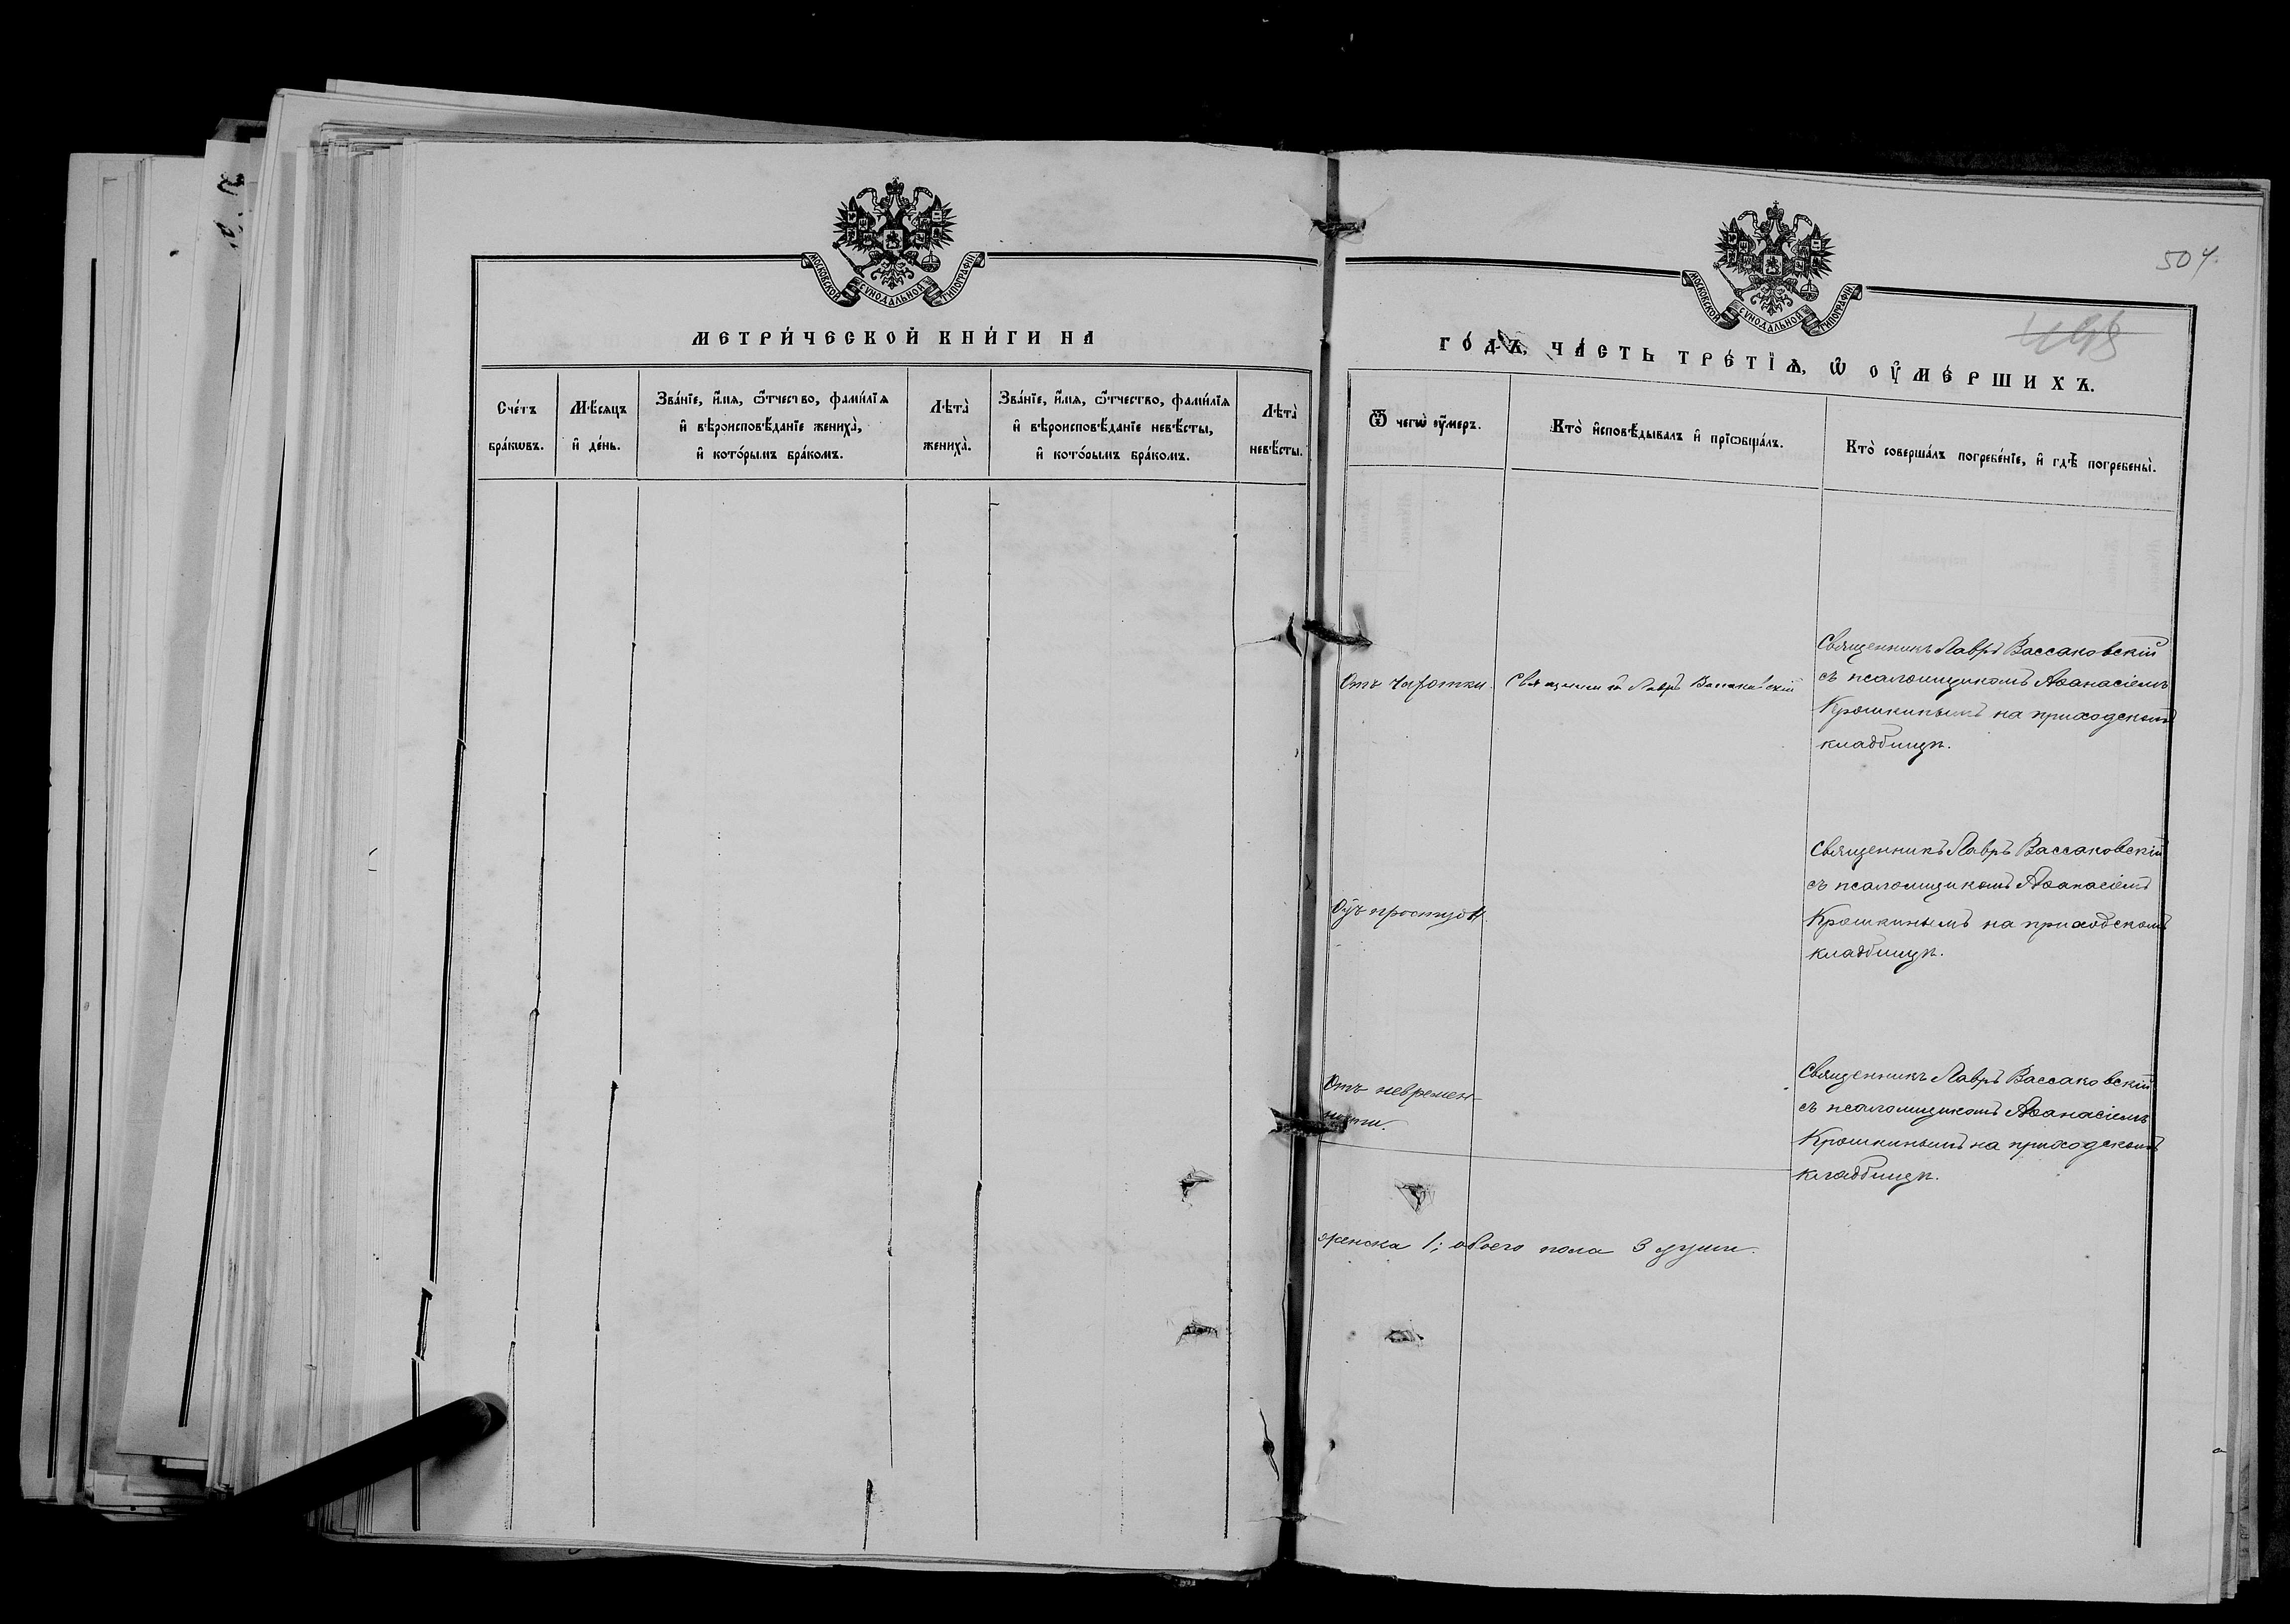 МОСКОВСКОЙ СѴНОДАЛЬНОЙ ТИПОГРАФІИ
МЕТРИ́ЧЕСКОЙ КНИ́ГИ НА
Сче́тъ бра́кѡвъ.
Мѣ́сяцъ и҆ де́нь.
Зва́нїе, и҆́мя, ѻ҆́тчество, фами́лїя и҆ вѣроисповѣ́данїе жениха̀, и҆ кото́рымъ бра́комъ.
Лѣта̀ жениха̀.
Зва́нїе, и҆́мя, ѻ҆́тчество, фами́лїя и҆ вѣроисповѣ́данїе невѣ́сты, и҆ кото́рымъ бра́комъ.
Лѣта̀ невѣ́сты.
МОСКОВСКОЙ СѴНОДАЛЬНОЙ ТИПОГРАФІИ
504.
ГО́ДЪ, ЧА́СТЬ ТРЕ́ТЇѦ, Ѡ҆ ОУ҆МЕ́РШИХЪ.
Ѿ чегѡ̀ оу҆́меръ.
Кто̀ и҆сповѣ́дывалъ и҆ прїѡбща́лъ.
Кто̀ соверша́лъ погребе́нїе, и҆ гдѣ̀ погребены̀.
Отъ чахотки.
Священникъ Лавръ Вассаковскій
Священникъ Лавръ Вассаковскій
съ псаломщикомъ Аѳанасіемъ
Крошкинымъ на приходскомъ
кладбищѣ.
Отъ простуды.
Священникъ Лавръ Вассаковскій
съ псаломщикомъ Аѳанасіемъ
Крошкинымъ на приходскомъ
кладбищѣ.
Отъ невремен-
ности.
Священникъ Лавръ Вассаковскій
съ псаломщикомъ Аѳанасіемъ
Крошкинымъ на приходскомъ
кладбищѣ.
женска 1; обоего пола 3 души.